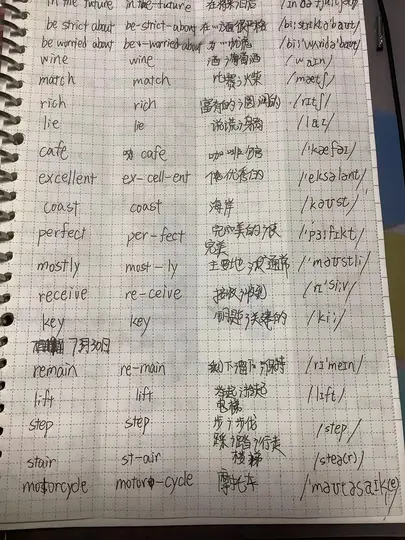 in the future in the-future 在将来 /ɪn ðə fjuːtʃə/
be strict about be-strict-about /biːstrɪktə'baʊt/
be worried about be-worried-about /biː'wʌrɪdə'baʊt/
wine wine 酒 葡萄酒 /waɪn/
match match 比赛 火柴 /mætʃ/
rich rich 富有的 /rɪtʃ/
lie lie 说谎 /laɪ/
cafe cafe 咖啡馆 /'kæfəɪ/
excellent ex-cell-ent 优秀的 /'eksələnt/
coast coast 海岸 /kəʊst/
perfect per-fect 完美的 /'pɜːfɪkt/
完美
mostly most-ly 主要地 通常 /'məʊstli/
receive re-ceive 接收 收到 /rɪ'siːv/
key key 钥匙 关键的 /kiː/
7月30日
remain re-main 剩下 留下 保持 /rɪ'meɪn/
lift lift 举起 /lɪft/
电梯
step step 步 步伐 /step/
踩 踏 行走
stair st-air 楼梯 /steə(r)/
motorcycle motor-cycle 摩托车 /'məʊtəsaɪk(ə)